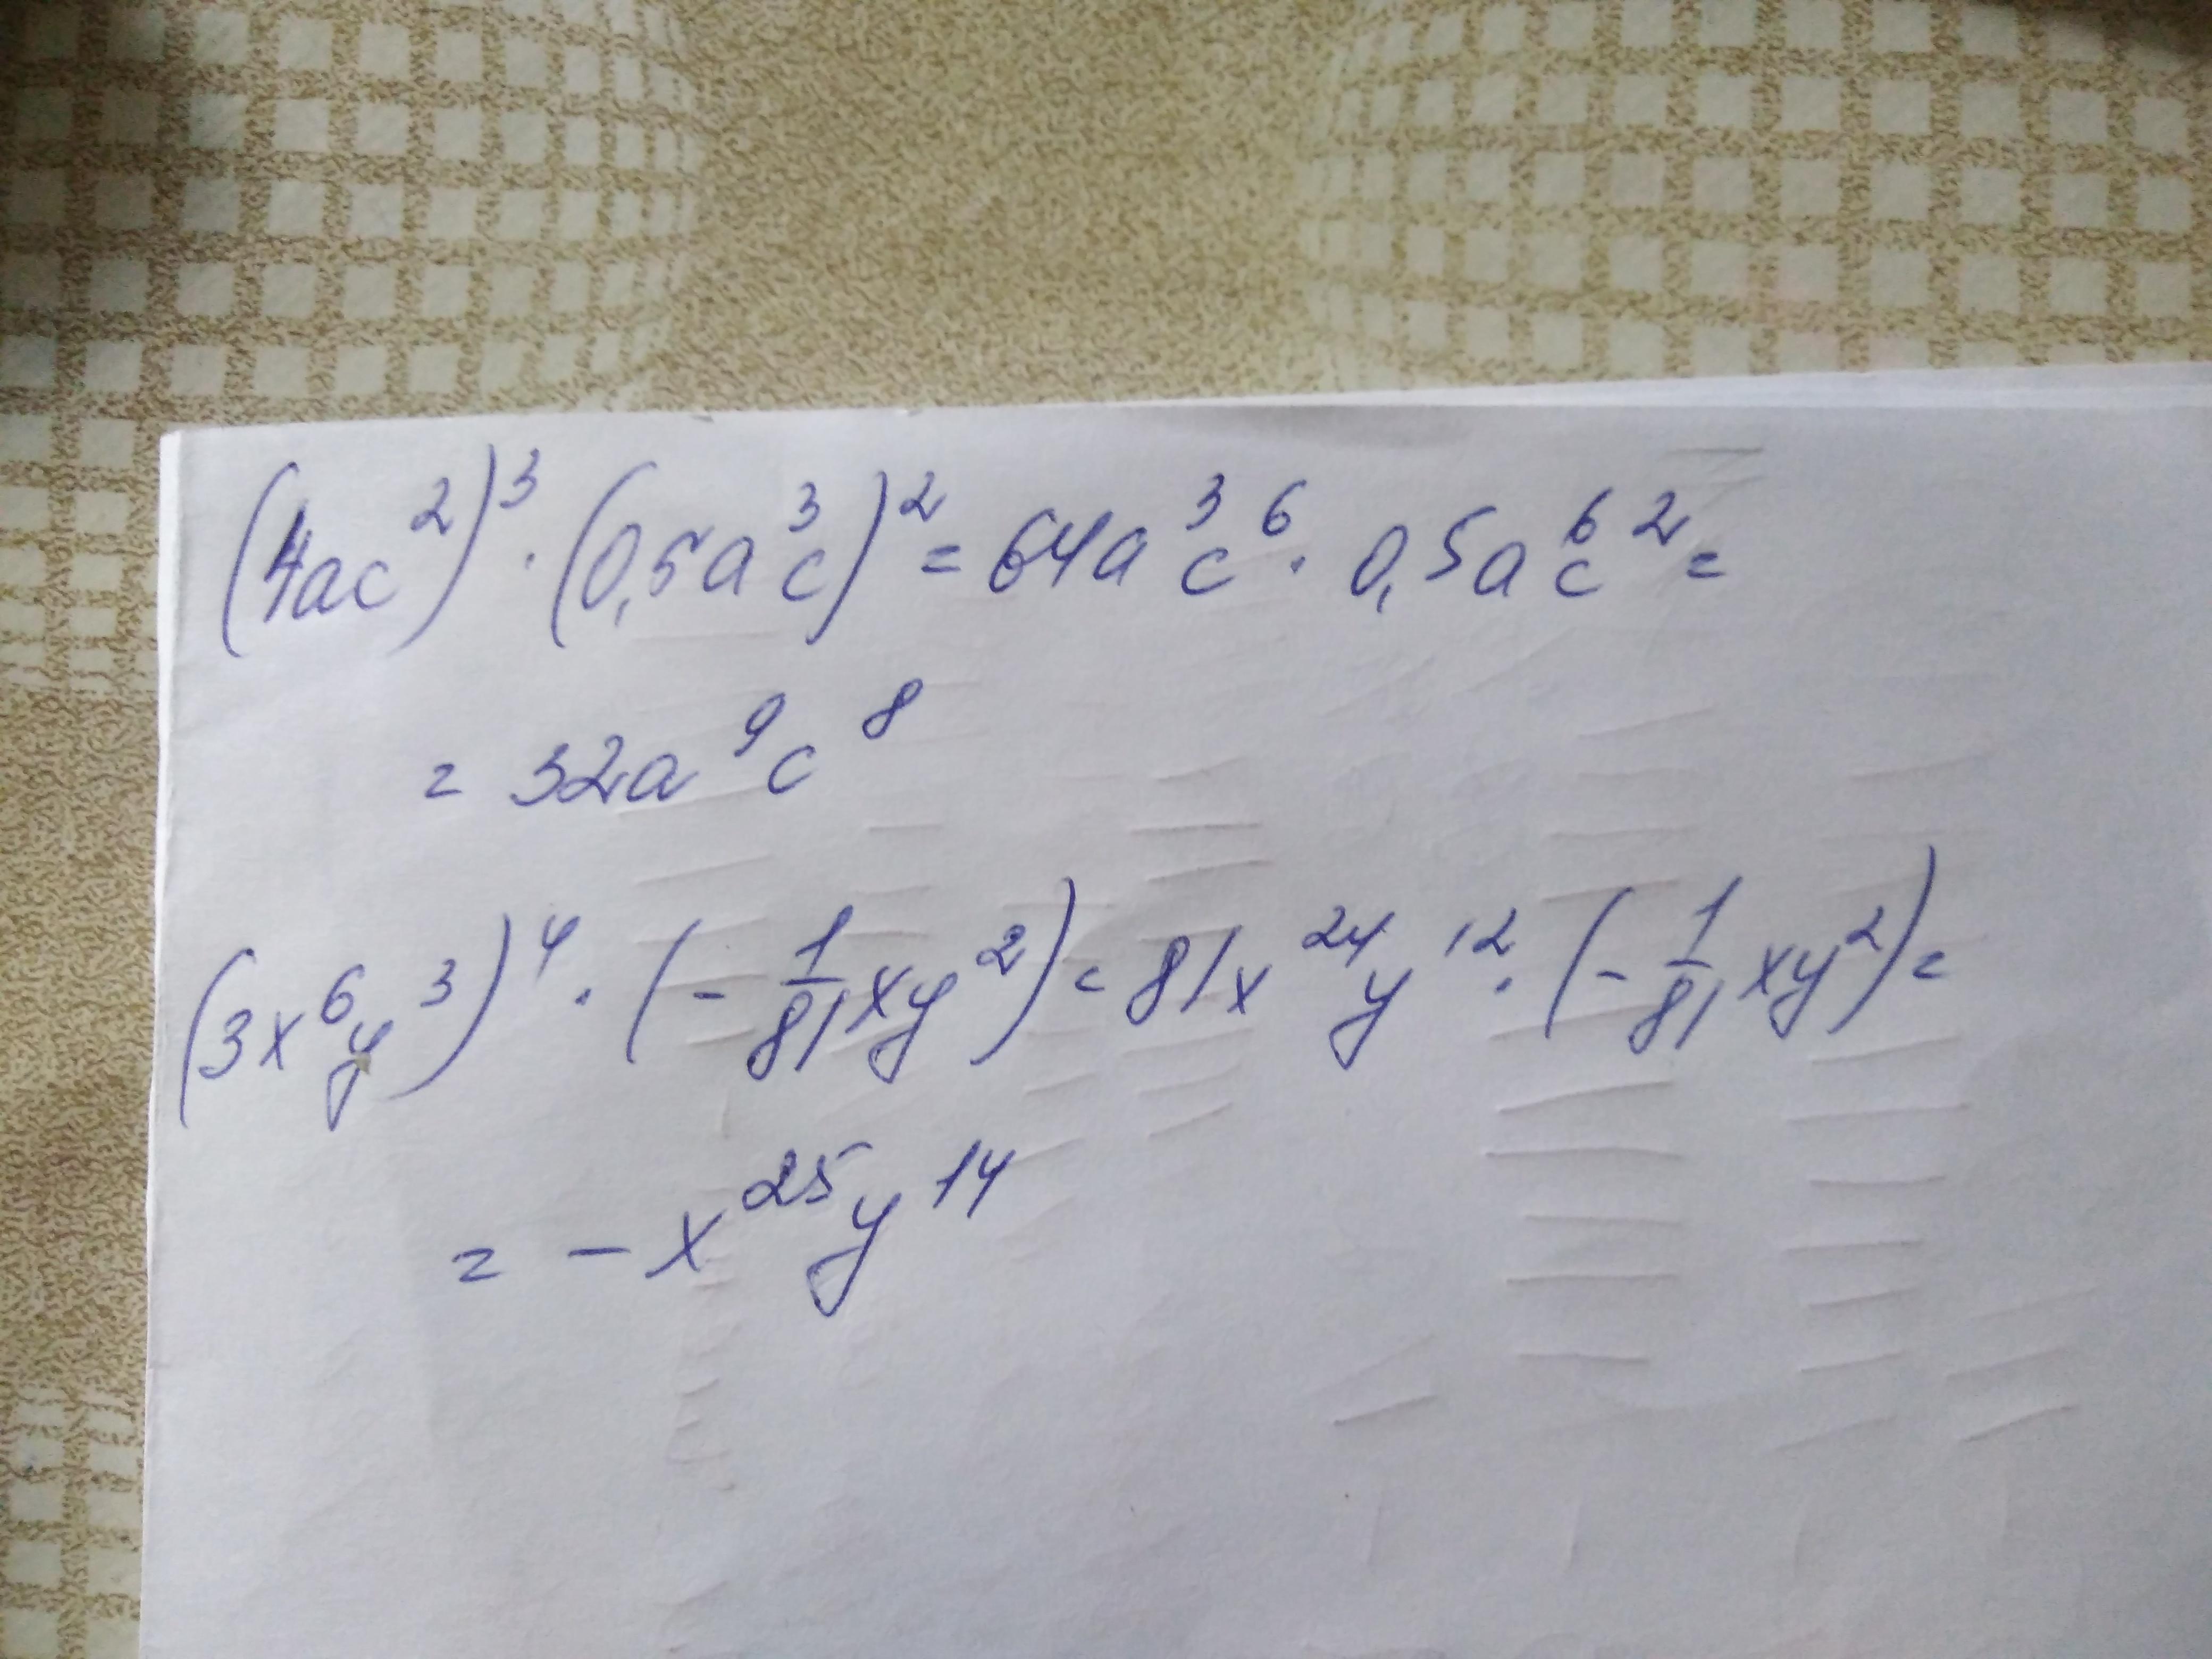 (4ac²)³ · (0,5a³c)² = 64a³c⁶ · 0,5a⁶c² =
= 32a⁹c⁸
(3x⁶y³)⁴ · (- 1/81 xy²) = 81x²⁴y¹² · (- 1/81 xy²) =
= - x²⁵y¹⁴